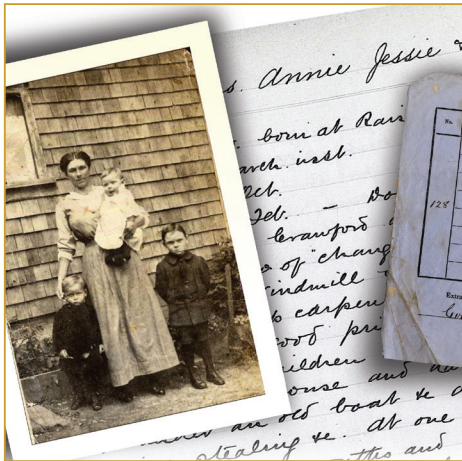 s. Annie Jessie &
born at Rain
arch inst.
Oct.
Feb. –
Crawford
of "chang
indmill
carpen
good pri
children
ouse and
under an old boat &c
stealing &c. At one
months and
No.
128
Extra